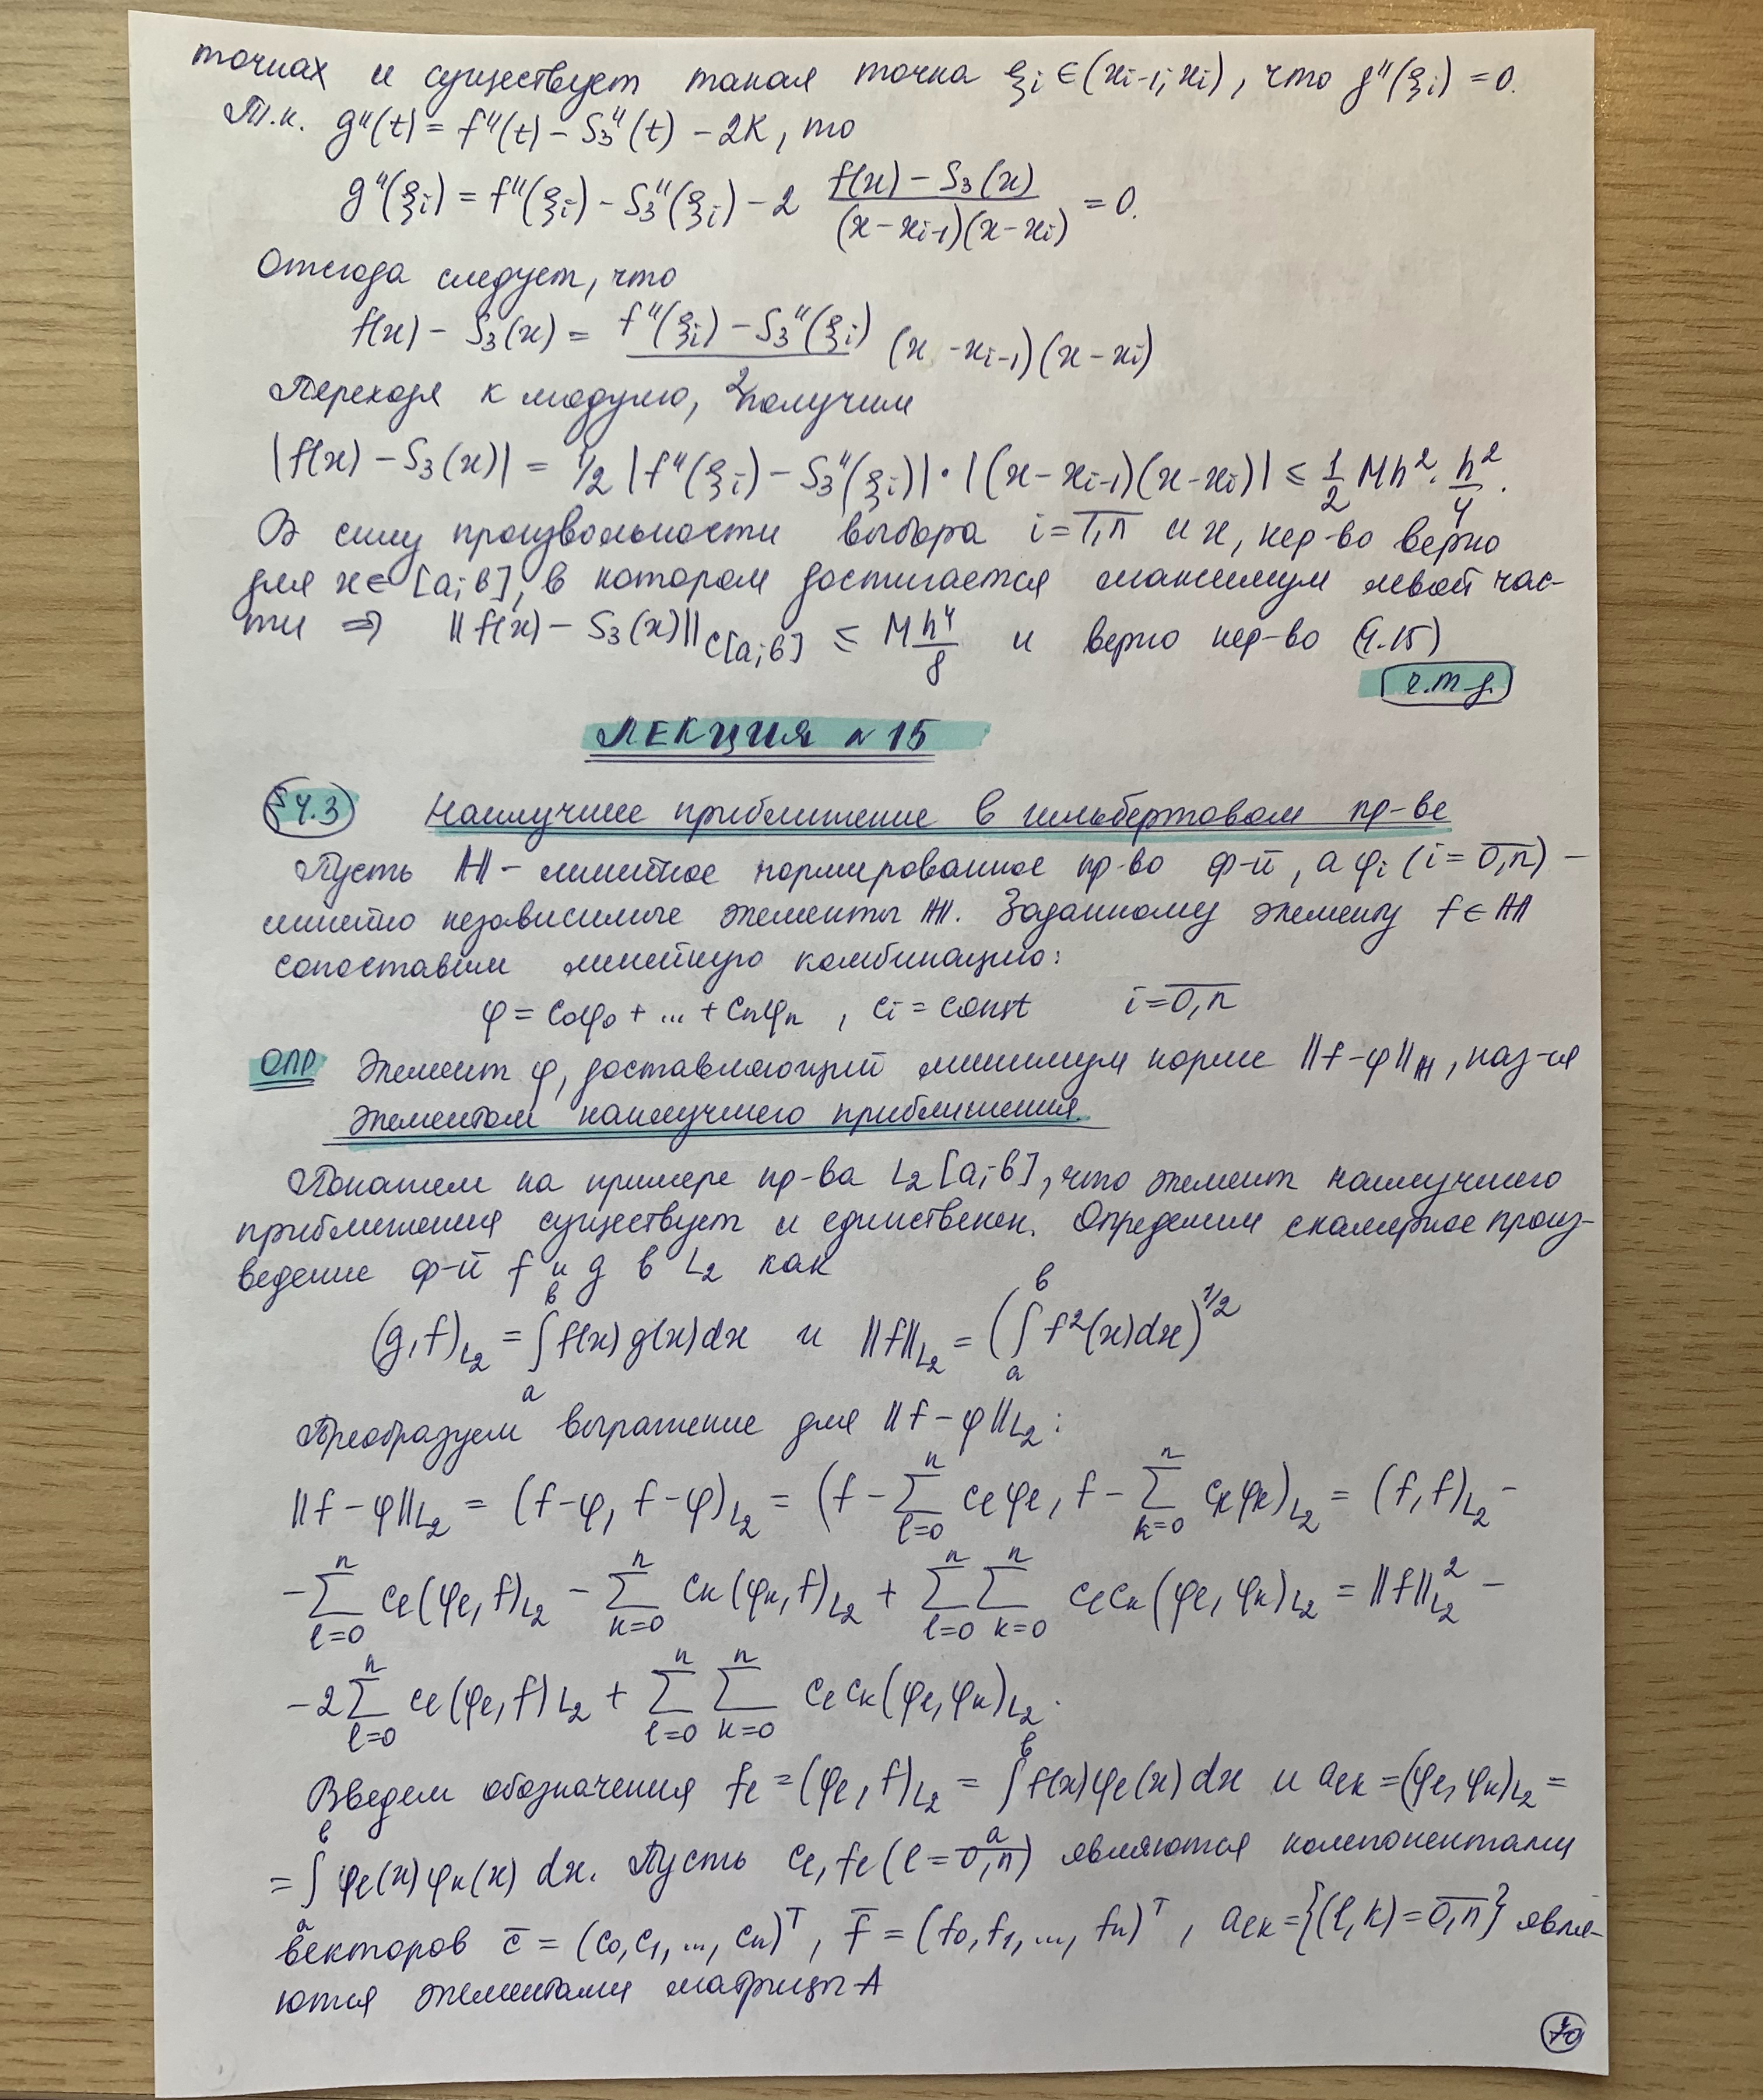 точках и существует такая точка ξᵢ ∈ (xᵢ₋₁; xᵢ), что g''(ξᵢ) = 0.
Т.к. g''(t) = f''(t) − S₃''(t) − 2K, то
g''(ξᵢ) = f''(ξᵢ) − S₃''(ξᵢ) − 2 (f(x) − S₃(x)) / ((x − xᵢ₋₁)(x − xᵢ)) = 0.
Отсюда следует, что
f(x) − S₃(x) = (f''(ξᵢ) − S₃''(ξᵢ)) / 2 (x − xᵢ₋₁)(x − xᵢ)
Переходя к модулю, получим
|f(x) − S₃(x)| = 1/2 |f''(ξᵢ) − S₃''(ξᵢ)| · |(x − xᵢ₋₁)(x − xᵢ)| ≤ 1/2 Mh² · h²/4.
В силу произвольности выбора i = 1,n и x, нер-во верно
для x ∈ [a; b], в котором достигается максимум левой час-
ти ⇒ ‖f(x) − S₃(x)‖C[a; b] ≤ M h⁴/8 и верно нер-во (4.15)
ч.т.д.
ЛЕКЦИЯ №15
§4.3 Наилучшее приближение в гильбертовом пр-ве
Пусть H – линейное нормированное пр-во ф-й, а φᵢ (i = 0,n) –
линейно независимые элементы H. Заданному элементу f ∈ H
сопоставим линейную комбинацию:
φ = c₀φ₀ + ... + cₙφₙ , cᵢ = const i = 0,n
ОПР Элемент φ, доставляющий минимум норме ‖f − φ‖H, наз-ся
элементом наилучшего приближения.
Покажем на примере пр-ва L₂[a; b], что элемент наилучшего
приближения существует и единственен. Определим скалярное произ-
ведение ф-й f и g в L₂ как
(g, f)L₂ = ∫ₐᵇ f(x) g(x) dx и ‖f‖L₂ = (∫ₐᵇ f²(x) dx)^1/2
Преобразуем выражение для ‖f − φ‖L₂:
‖f − φ‖L₂ = (f − φ, f − φ)L₂ = (f − ∑ₗ₌₀ⁿ cₗφₗ, f − ∑ₖ₌₀ⁿ cₖφₖ)L₂ = (f, f)L₂ −
− ∑ₗ₌₀ⁿ cₗ(φₗ, f)L₂ − ∑ₖ₌₀ⁿ cₖ(φₖ, f)L₂ + ∑ₗ₌₀ⁿ ∑ₖ₌₀ⁿ cₗcₖ(φₗ, φₖ)L₂ = ‖f‖²L₂ −
− 2∑ₗ₌₀ⁿ cₗ(φₗ, f)L₂ + ∑ₗ₌₀ⁿ ∑ₖ₌₀ⁿ cₗcₖ(φₗ, φₖ)L₂.
Введем обозначения fₗ = (φₗ, f)L₂ = ∫ₐᵇ f(x)φₗ(x) dx и aₗₖ = (φₗ, φₖ)L₂ =
= ∫ₐᵇ φₗ(x) φₖ(x) dx. Пусть cₗ, fₗ (l = 0,n) являются компонентами
векторов c̄ = (c₀, c₁, ..., cₙ)ᵀ, f̄ = (f₀, f₁, ..., fₙ)ᵀ, aₗₖ = {(l, k) = 0,n} явля-
ются элементами матрицы A
70